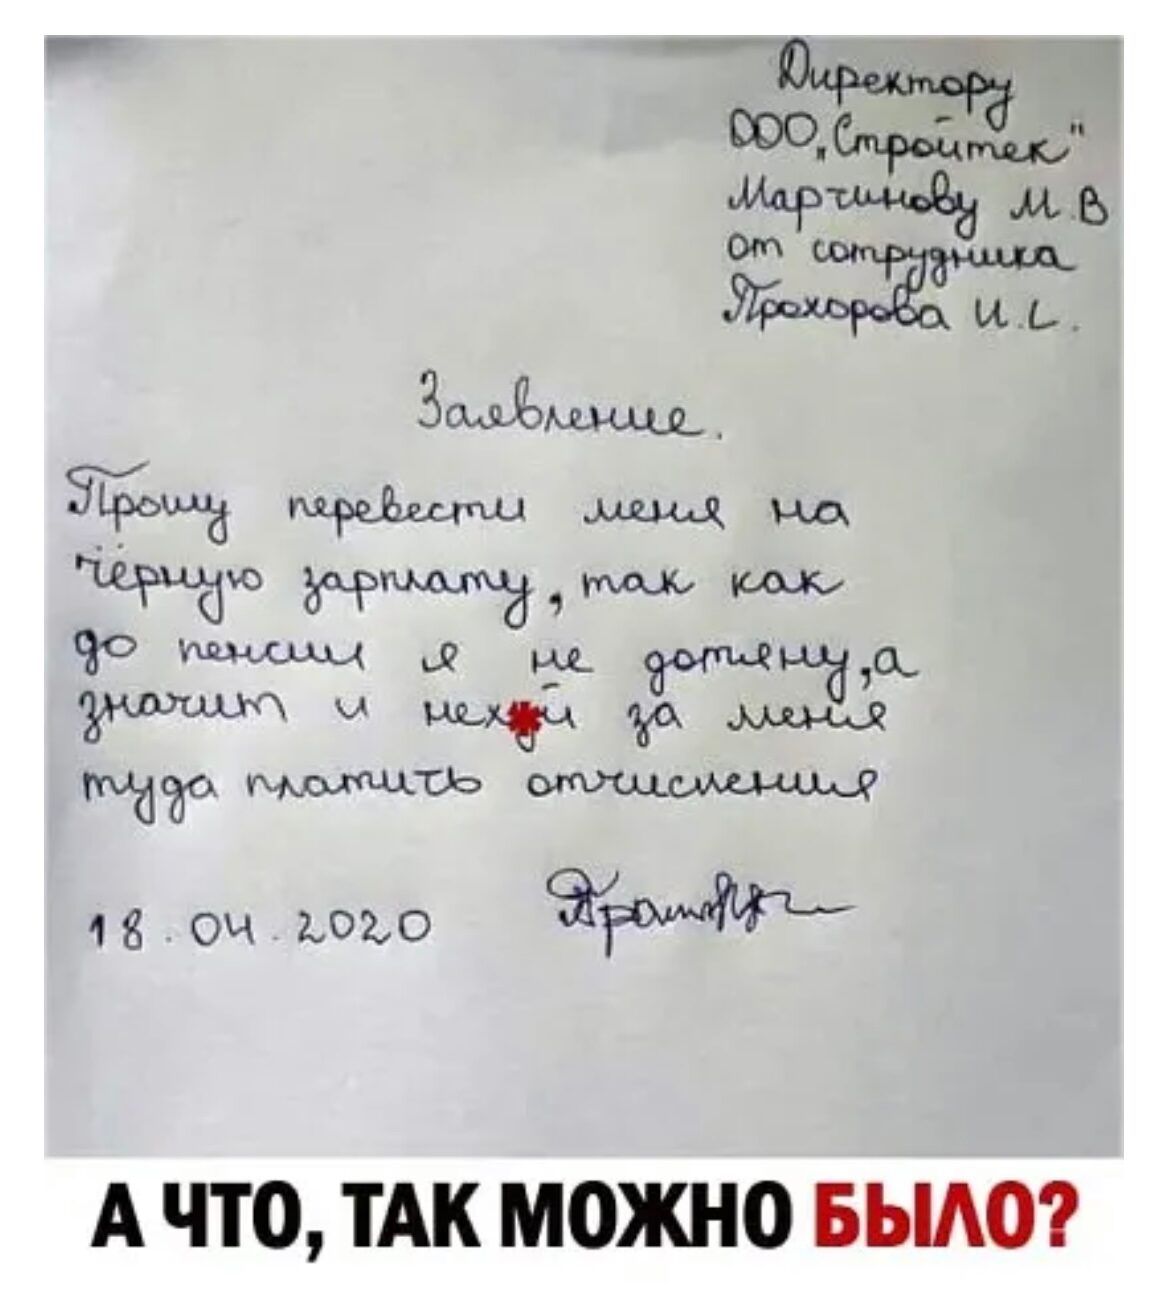 Директору
ООО „Стройтек"
Марчинову М.В
от сотрудника
Прохорова И.С.
Заявление.
Прошу перевести меня на
чёрную зарплату, так как
до пенсии я не дотяну, а
значит и нех*й за меня
туда платить отчисления
18.04.2020
А ЧТО, ТАК МОЖНО БЫЛО?